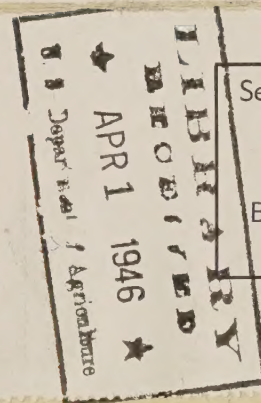 LIBRARY
RECEIVED
★ APR 1 1946 ★
U. S. Department of Agriculture
Se
B